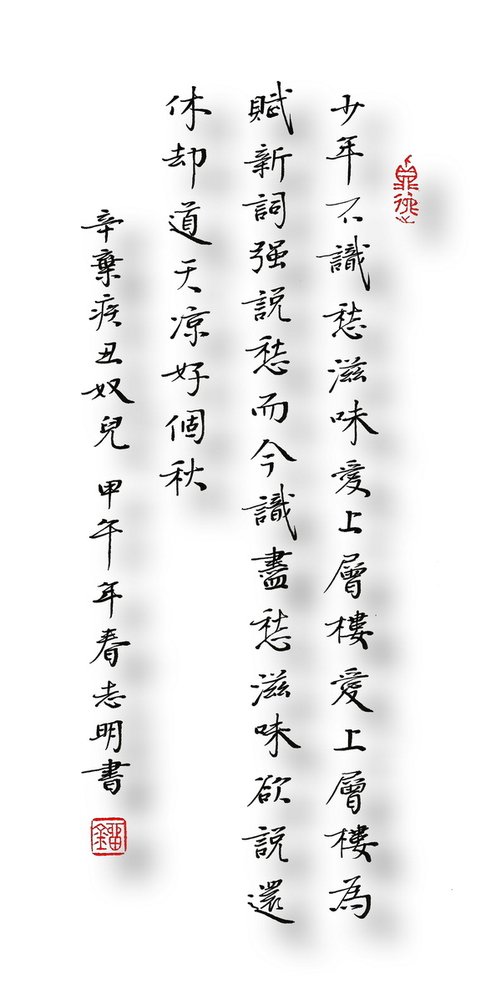 少年不識愁滋味愛上層樓愛上層樓為
賦新詞强説愁而今識盡愁滋味欲説還
休却道天凉好個秋
辛棄疾丑奴兒 甲午年春志明書